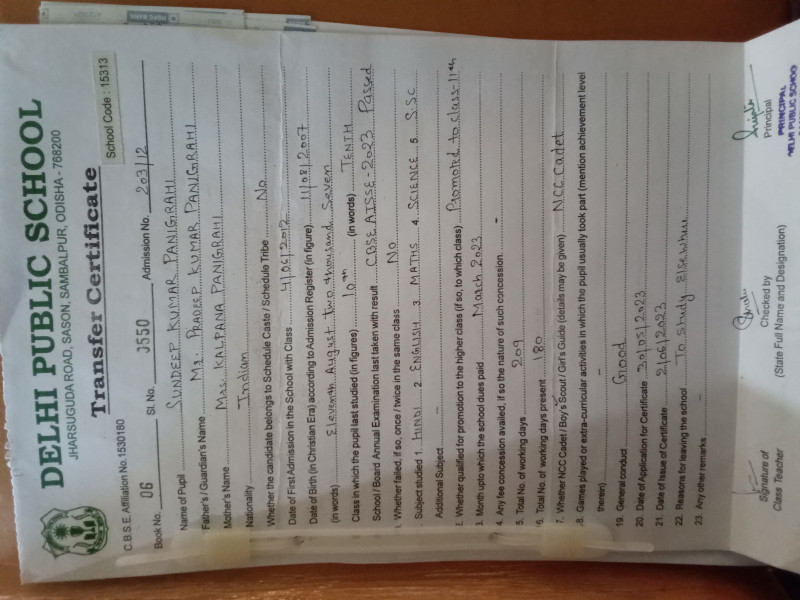 DELHI PUBLIC SCHOOL
JHARSUGUDA ROAD, SASON, SAMBALPUR, ODISHA - 768200
Transfer Certificate
C.B.S.E. Affiliation No. 1530160
School Code : 15313
Book No. 06 Sl. No. 0550 Admission No. 203/12
Name of Pupil SUNDEEP KUMAR PANIGRAHI
Father's / Guardian's Name Mr. PRADEEP KUMAR PANIGRAHI
Mother's Name Mrs. KALPANA PANIGRAHI
Nationality Indian
Whether the candidate belongs to Schedule Caste / Schedule Tribe No
Date of First Admission in the School with Class 4/06/2012
Date of Birth (in Christian Era) according to Admission Register (in figure) 11/08/2007
(in words) Eleventh August two thousand Seven
Class in which the pupil last studied (in figures) 10th (in words) TENTH
School / Board Annual Examination last taken with result CBSE AISSE-2023 Passed
Whether failed, if so, once / twice in the same class No
Subject studied 1. HINDI 2. ENGLISH 3. MATHS 4. SCIENCE 5. S.SC
Additional Subject -
2. Whether qualified for promotion to the higher class (if so, to which class) Promoted to class-11th
3. Month upto which the school dues paid March 2023
4. Any fee concession availed, if so the nature of such concession. -
5. Total No. of working days 209
6. Total No. of working days present 180
7. Whether NCC Cadet / Boy's Scout / Girl's Guide (details may be given) NCC Cadet
8. Games played or extra-curricular activities in which the pupil usually took part (mention achievement level
therein) -
19. General conduct Good
20. Date of Application for Certificate 30/05/2023
21. Date of Issue of Certificate 2/06/2023
22. Reasons for leaving the school To Study Elsewhere
23. Any other remarks -
Signature of
Class Teacher
Checked by
(State Full Name and Designation)
Principal
PRINCIPAL
DELHI PUBLIC SCHOO